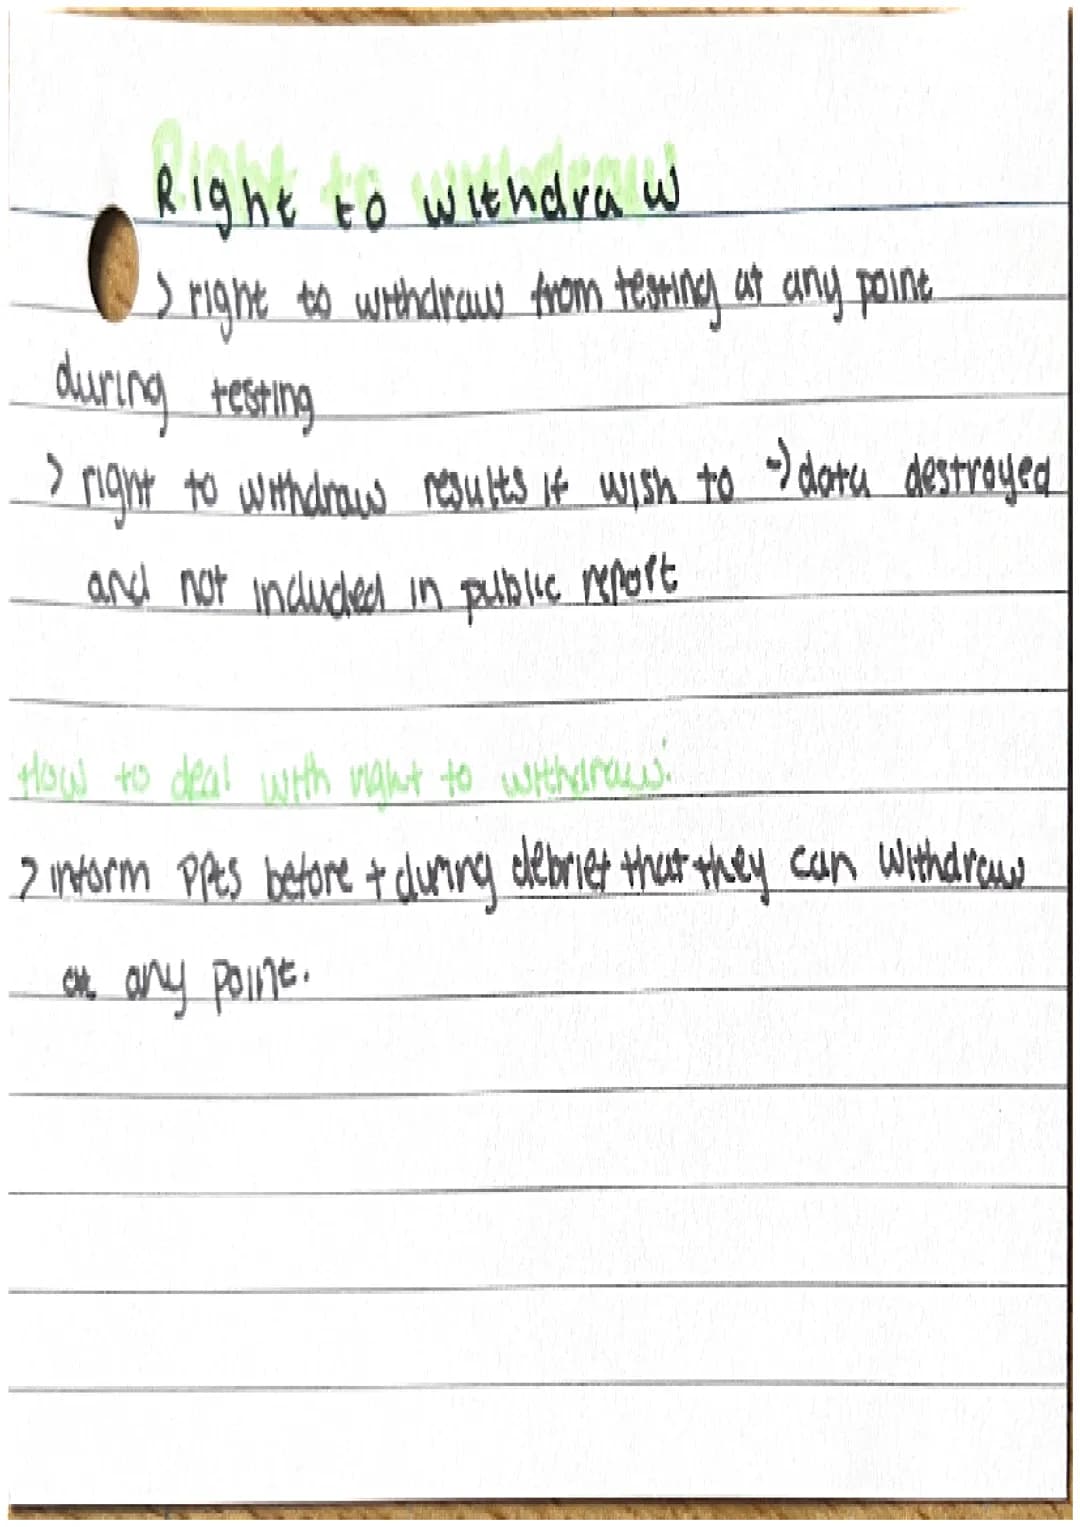 Right to withdraw
> right to withdraw from testing at any point
during testing
> right to withdraw results if wish to → data destroyed
and not included in public report
How to deal with right to withdraw:
> inform PPts before + during debrief that they can withdraw
at any point.